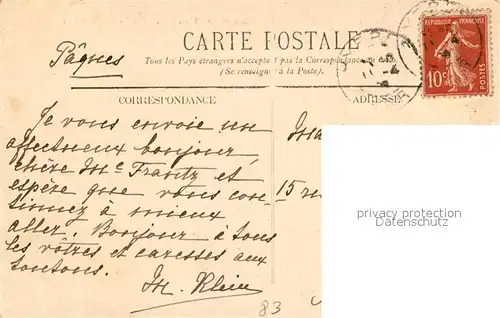 Pâques
CARTE POSTALE
Tous les Pays étrangers n'acceptent pas la Correspondance au recto
(Se renseigner à la Poste)
RÉPUBLIQUE FRANÇAISE
10c
POSTES
CORRESPONDANCE
ADRESSE
Je vous envoie un
affectueux bonjour,
chère Me Frantz et
espère que vous con-
tinuez à mieux
aller. Bonjour à tous
les vôtres et caresses aux
toutous.
M. Klein
15
privacy protection
Datenschutz
83